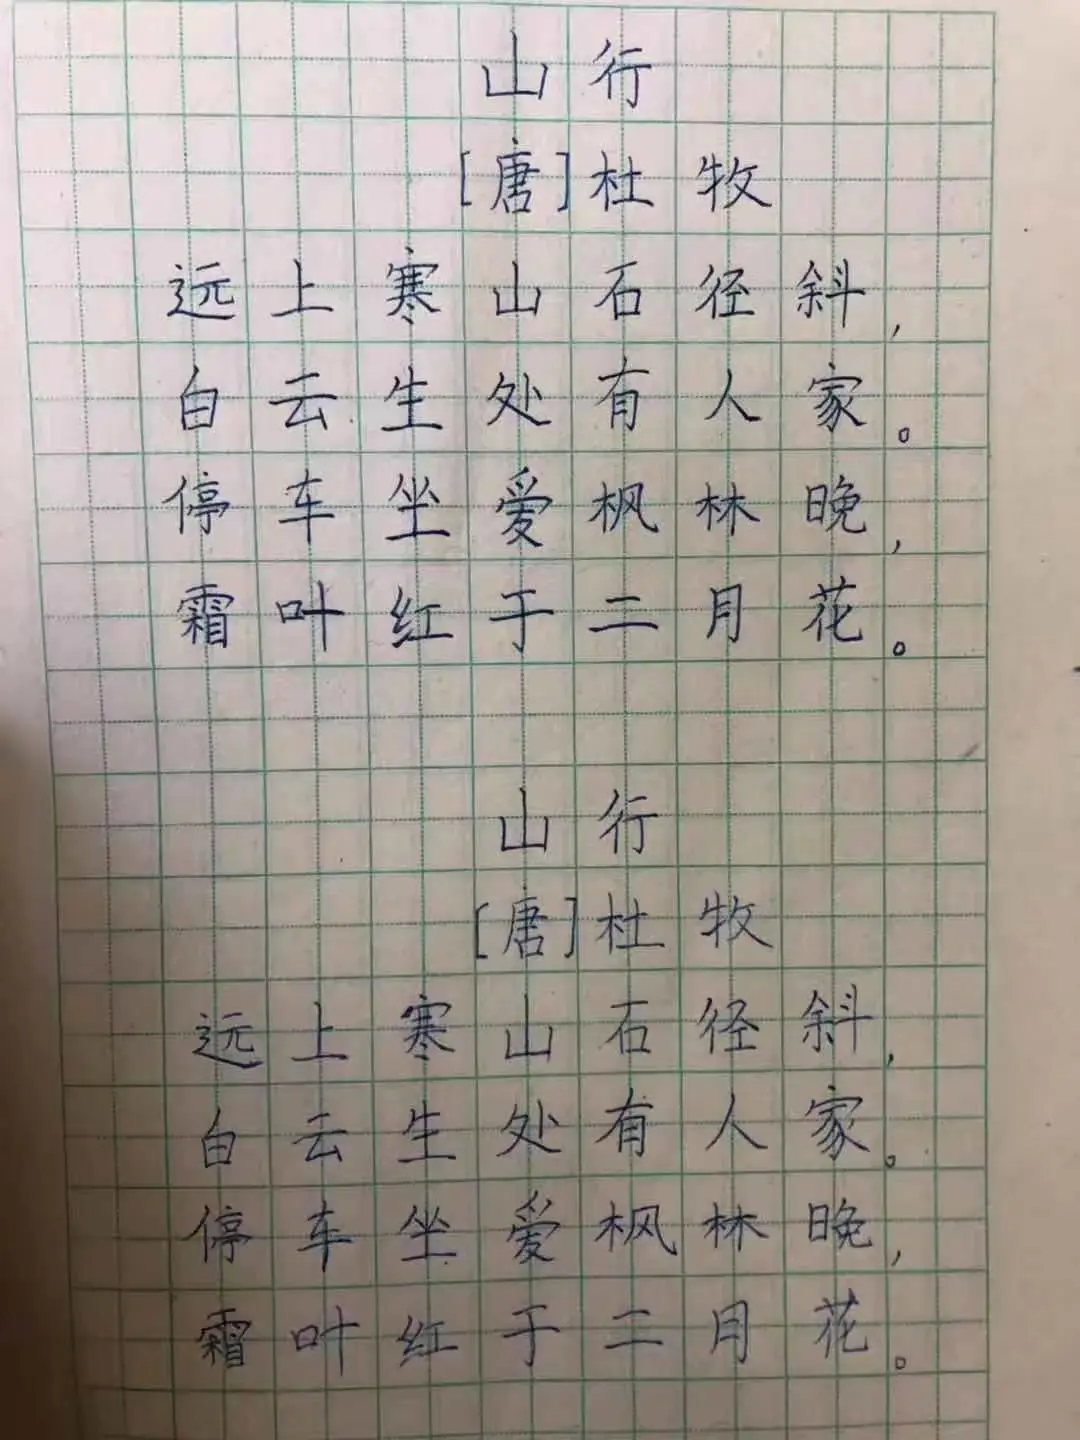 山行
[唐]杜牧
远上寒山石径斜,
白云生处有人家。
停车坐爱枫林晚,
霜叶红于二月花。
山行
[唐]杜牧
远上寒山石径斜,
白云生处有人家。
停车坐爱枫林晚,
霜叶红于二月花。